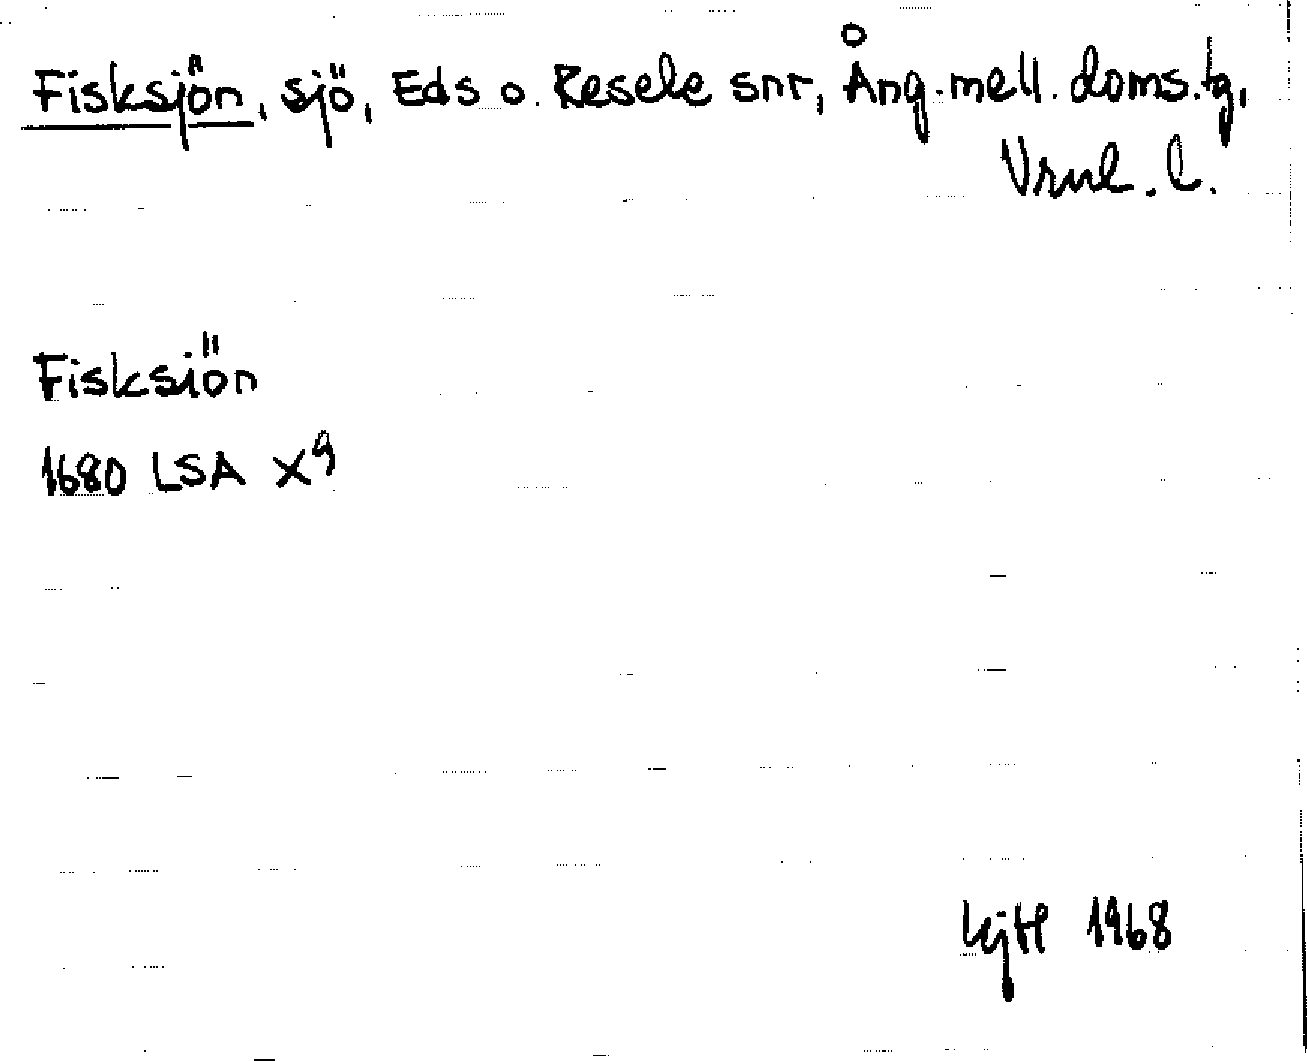 Fisksjön, sjö, Eds o. Resele snr, Ång.mell. doms.tg,
Vrnl. l.
Fisksiön
1680 LSA X9
1968